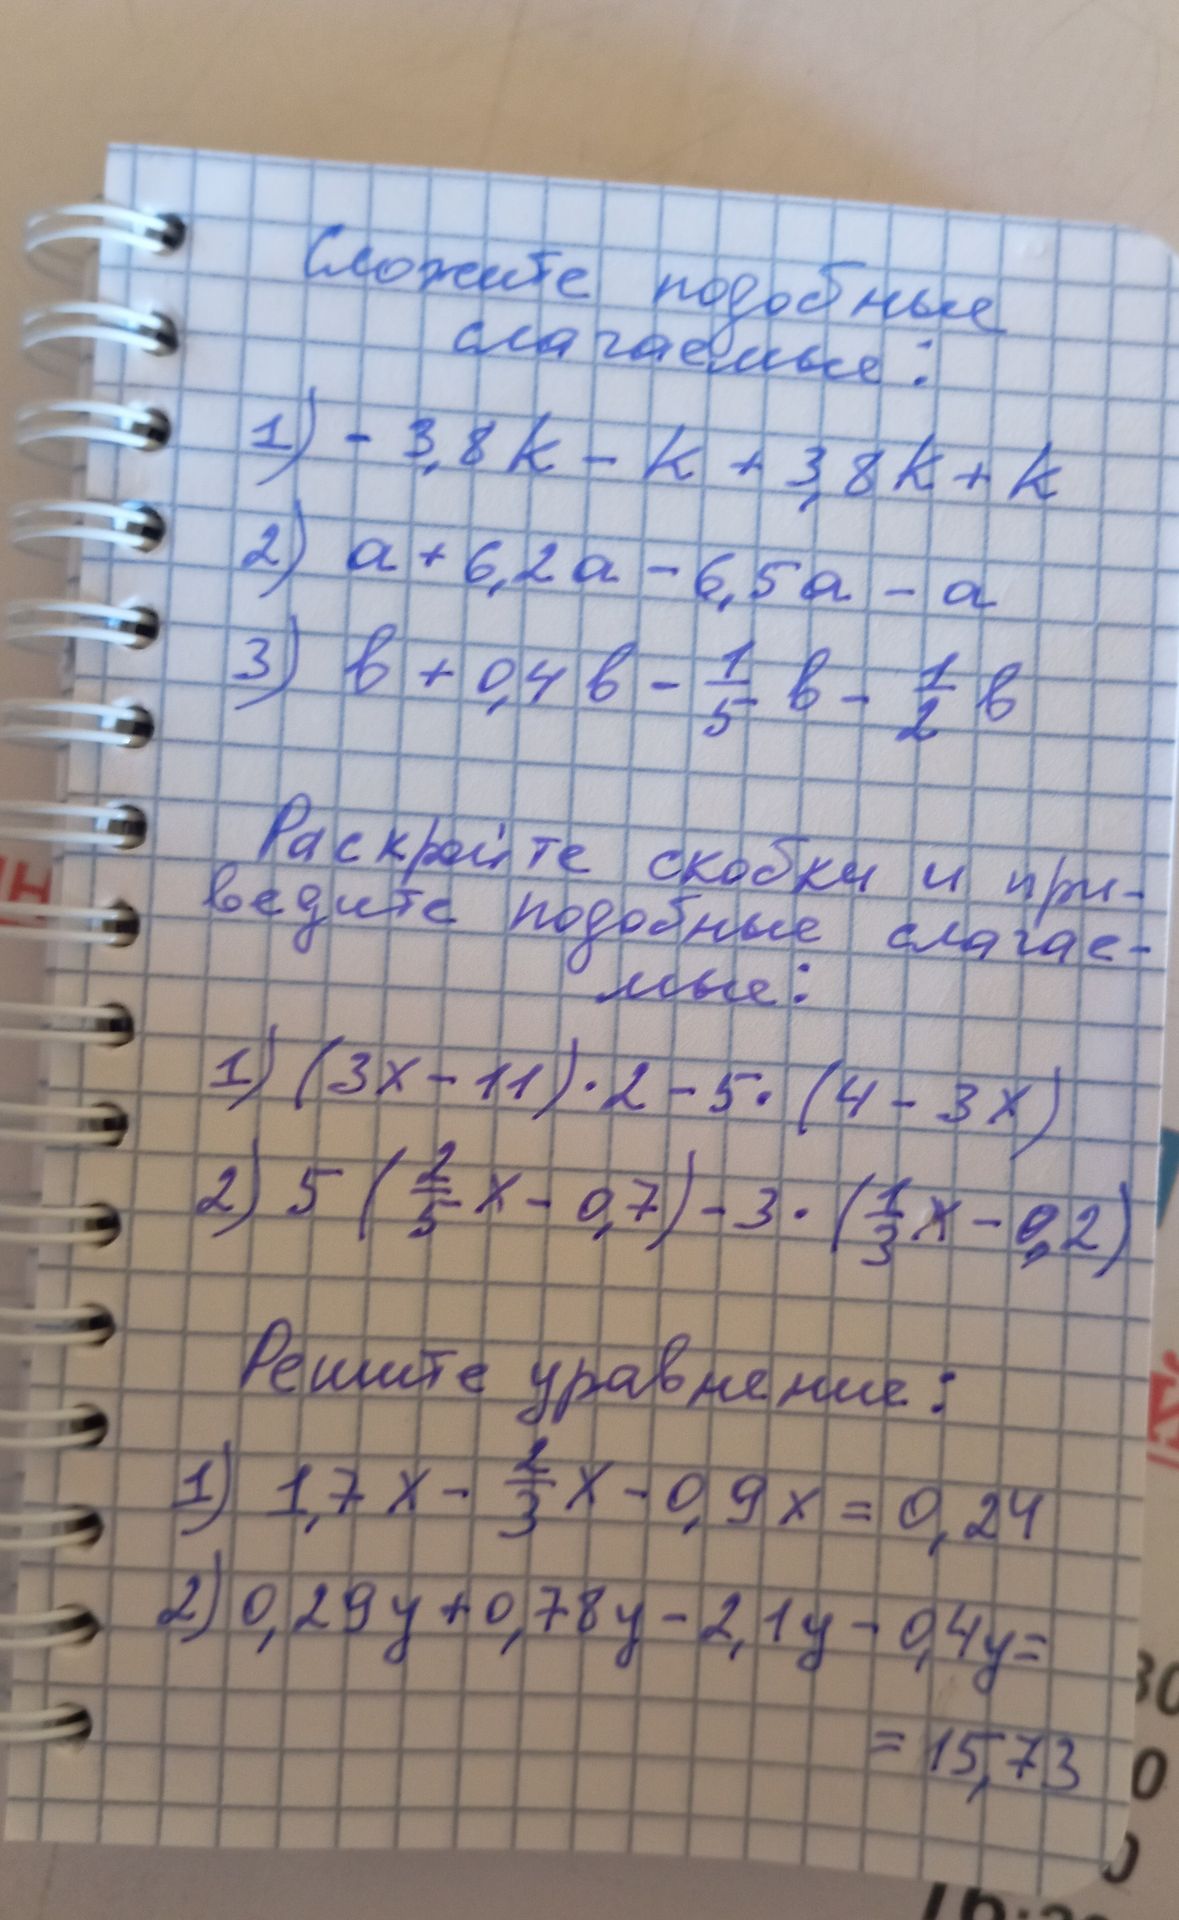 Сложите подобные
слагаемые:
1) - 3,8k - k + 3,8k + k
2) a + 6,2a - 6,5a - a
3) в + 0,4в - 1/5 в - 1/2 в
Раскройте скобки и при-
ведите подобные слагае-
мые:
1) (3x - 11) · 2 - 5 · (4 - 3x)
2) 5 (2/5 x - 0,7) - 3 · (1/3 x - 0,2)
Решите уравнение:
1) 1,7x - 2/3 x - 0,9x = 0,24
2) 0,29y + 0,78y - 2,1y - 0,4y =
= 15,73